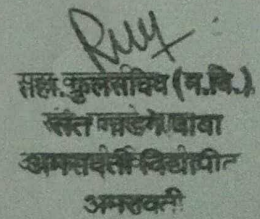 सहा. कुलसचिव (म.वि.)
संत गाडगे बाबा
अमरावती विद्यापीठ
अमरावती